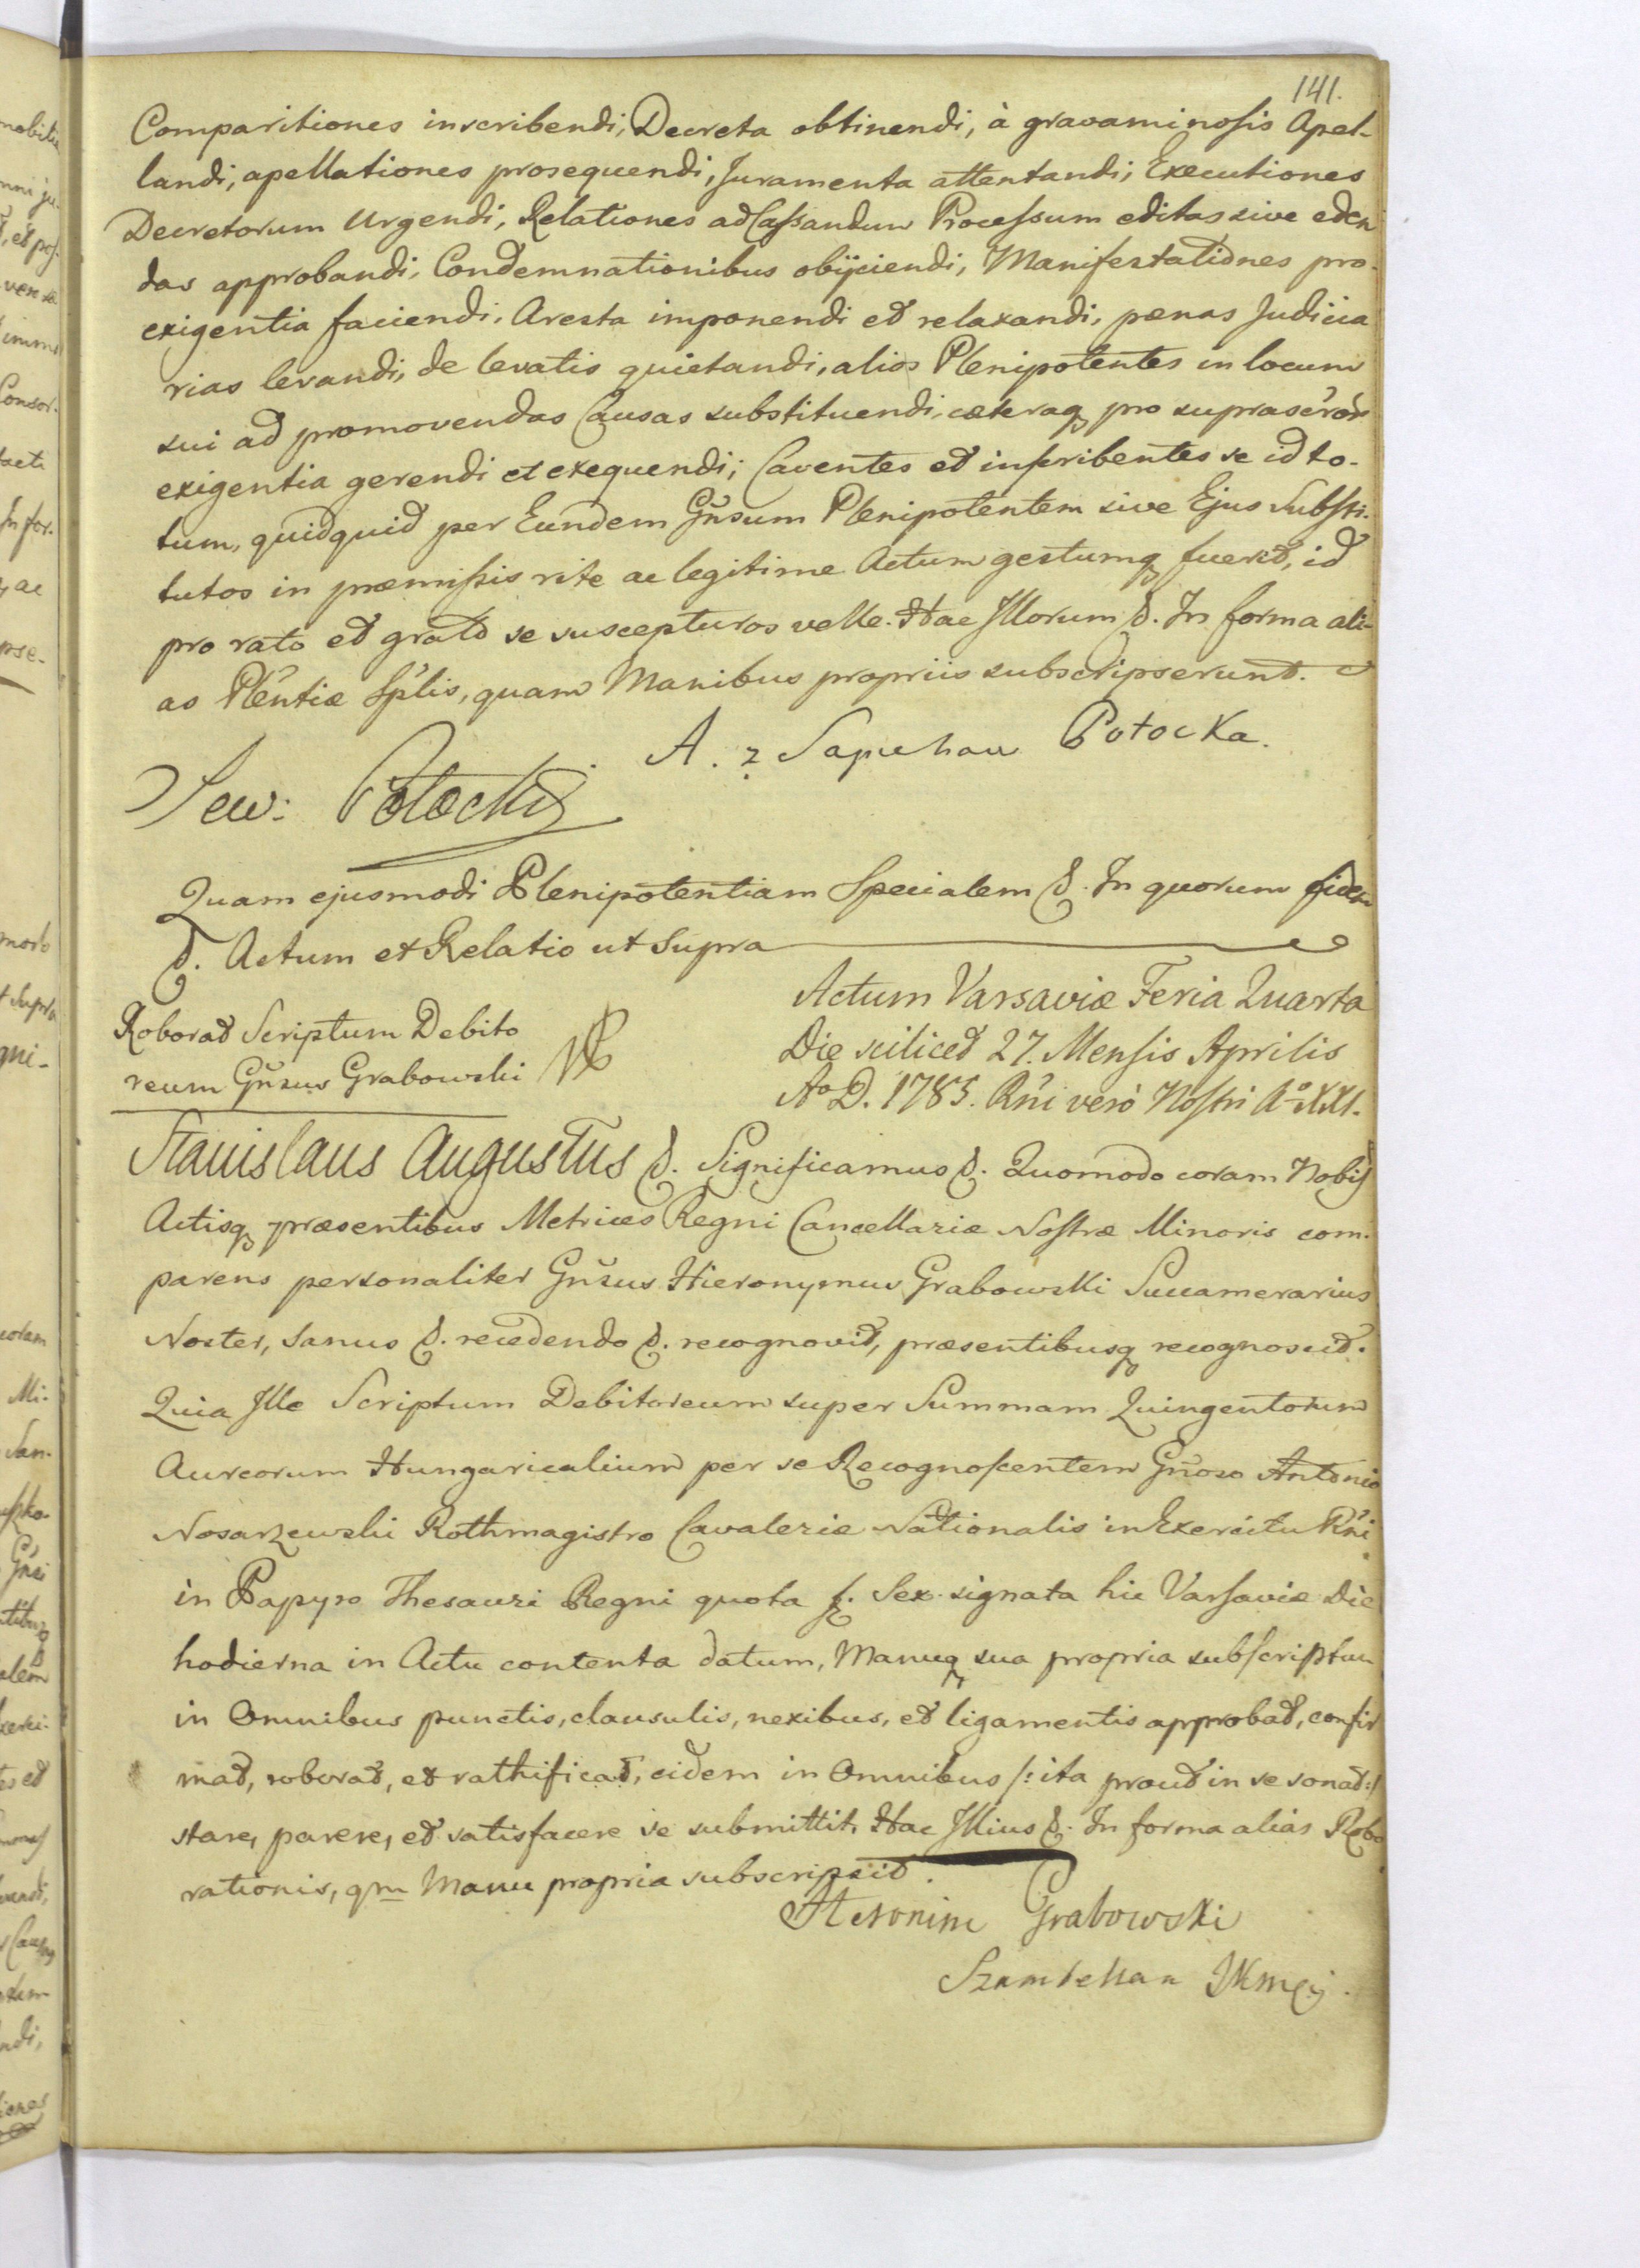 141.
Comparitiones inscribendi, Decreta obtinendi, à gravaminosis Apel-
landi, apellationes prosequendi, Juramenta attentandi, Executiones
Decretorum Urgendi, Relationes ad Cassandum Processum editas sive eden
das approbandi, Condemnationibus obijciendi, Manifestationes pro
exigentia faciendi, Aresta imponendi et relaxandi, pœnas Judicia
rias levandi, de levatis quietandi, alios Plenipotentes in locum
sui ad promovendas Causas substituendi, cæteraq pro
exigentia gerendi et exequendi; Caventes et inscribentes se id to-
tum, quidquid per Eundem Gñsum Plenipotentem sive Ejus Substi-
tutos in præmissis rite ac legitime Actum gestumq fuerit, id
pro rato et grato se suscepturos velle. Hac Illorum &. In forma ali-
as Plentiæ Splis, quam Manibus propriis subscripserunt.
A. z Sapiehow Potocka.
Sew: Potocki
Quam ejusmodi Plenipotentiam Specialem &. In quorum fidem
&. Actum et Relatio ut Supra
Roborat Scriptum Debito
reum Gñsus Grabowski
Actum Varsaviæ Feria Quarta
Die scilicet 27. Mensis Aprilis
Ao D. 1785. Rñi verò Nostri Ao XXI.
Stanislaus Augustus &. Significamus &. Quomodo coram Nobis
Actisq præsentibus Metrices Regni Cancellariæ Nostræ Minoris com-
parens personaliter Gñsus Hieronymus Grabowski Succamerarius
Noster, Sanus &. recedendo &. recognovit, præsentibusq recognoscit.
Quia Ille Scriptum Debitoreum super Summam Quingentorum
Aureorum Hungaricalium per se Recognoscentem Gñoso Antonio
Nosarzewski Rothmagistro Cavaleriæ Nationalis in Exercitu Rñi
in Papyro Thesauri Regni quota f. Sex signata hic Varsaviæ Die
hodierna in Actu contenta datum, Manuq sua propria subscriptum
in Omnibus punctis, clausulis, nexibus, et ligamentis approbat, confir
mat, roborat, et rathificat, eidem in Omnibus /: ita prout in se sonat :/
stare, parere, et satisfacere se submittit, Hac Illius &. In forma alias Robo
rationis, qm Manu propria subscripsit.
Hieronim Grabowski
Szambellan JKMci.